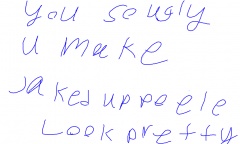 you so ugly
u make
Jaked up peele
Look pretty